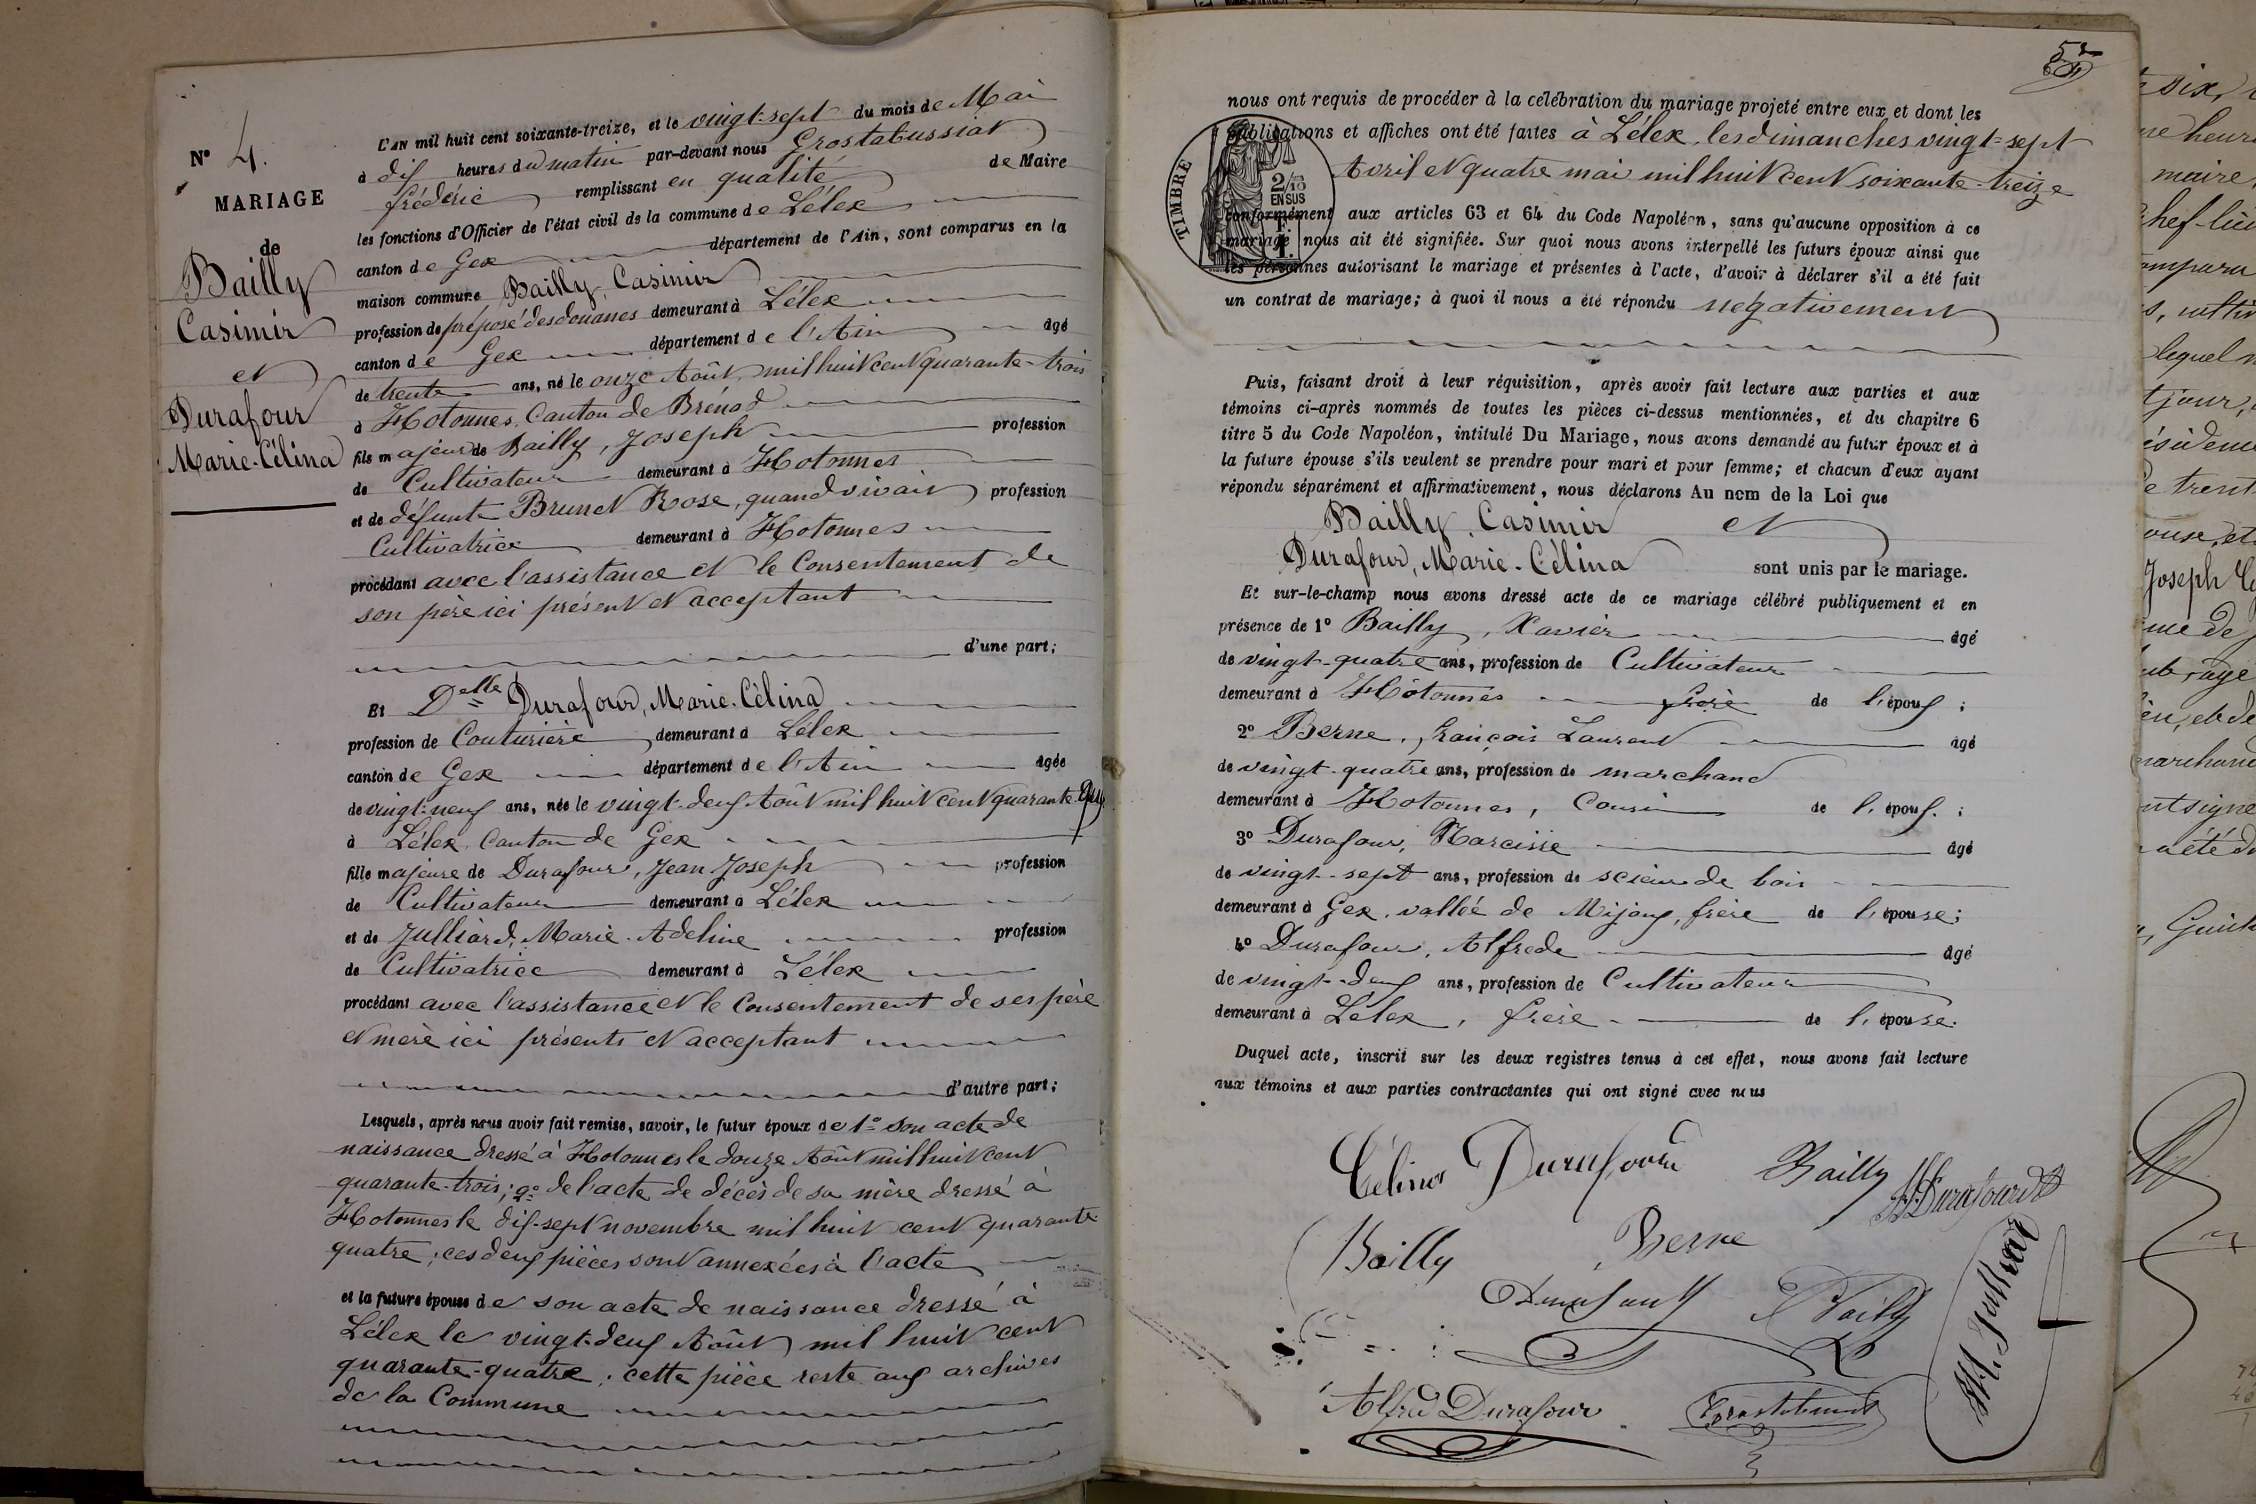 N° 4.
MARIAGE
de
Bailly
Casimir
et
Durafour
Marie-Célina
L'AN mil huit cent soixante-treize, et le vingt-sept du mois de Mai
à dix heures du matin par-devant nous Grostabussiat
frédéric remplissant en qualité de Maire
les fonctions d'Officier de l'état civil de la commune de Lélex
canton de Gex département de l'Ain, sont comparus en la
maison commune Bailly, Casimir
profession de préposé des douanes demeurant à Lélex
canton de Gex département de l'Ain âgé
de trente ans, né le onze Août mil huit cent quarante-trois
à Hotonnes, Canton de Brénod
fils majeur de Bailly, Joseph profession
de Cultivateur demeurant à Hotonnes
et de défunte Brunet Rose, quand vivait profession
Cultivatrice demeurant à Hotonnes
procédant avec l'assistance et le Consentement de
son père ici présent et acceptant
d'une part;
Et Delle Durafour, Marie-Célina
profession de Couturière demeurant à Lélex
canton de Gex département de l'Ain âgée
de vingt-neuf ans, née le vingt-deux Août mil huit cent quarante
à Lélex, Canton de Gex
fille majeure de Durafour, Jean Joseph profession
de Cultivateur demeurant à Lélex
et de Julliard, Marie-Adeline profession
de Cultivatrice demeurant à Lélex
procédant avec l'assistance et le Consentement de ses père
et mère ici présents et acceptant
d'autre part;
Lesquels, après nous avoir fait remise, savoir, le futur époux de 1° son acte de
naissance dressé à Hotonnes le douze Août mil huit cent
quarante-trois; 2° de l'acte de décès de sa mère dressé à
Hotonnes le dix-sept novembre mil huit cent quarante
quatre; ces deux pièces sont annexées à l'acte
et la future épouse de son acte de naissance dressé à
Lélex le vingt-deux Août mil huit cent
quarante-quatre; cette pièce reste aux archives
de la Commune
nous ont requis de procéder à la célébration du mariage projeté entre eux et dont les
publications et affiches ont été faites à Lélex, les dimanches vingt-sept
Avril et quatre mai mil huit cent soixante-treize
TIMBRE
2/10
EN SUS
conformément aux articles 63 et 64 du Code Napoléon, sans qu'aucune opposition à ce
mariage nous ait été signifiée. Sur quoi nous avons interpellé les futurs époux ainsi que
les personnes autorisant le mariage et présentes à l'acte, d'avoir à déclarer s'il a été fait
un contrat de mariage; à quoi il nous a été répondu négativement
Puis, faisant droit à leur réquisition, après avoir fait lecture aux parties et aux
témoins ci-après nommés de toutes les pièces ci-dessus mentionnées, et du chapitre 6
titre 5 du Code Napoléon, intitulé Du Mariage, nous avons demandé au futur époux et à
la future épouse s'ils veulent se prendre pour mari et pour femme; et chacun d'eux ayant
répondu séparément et affirmativement, nous déclarons Au nom de la Loi que
Bailly, Casimir et
Durafour, Marie-Célina sont unis par le mariage.
Et sur-le-champ nous avons dressé acte de ce mariage célébré publiquement et en
présence de 1° Bailly, Xavier âgé
de vingt-quatre ans, profession de Cultivateur
demeurant à Hotonnes frère de l'époux;
2° Berne, françois Laurent âgé
de vingt-quatre ans, profession de marchand
demeurant à Hotonnes, Cousin de l'époux;
3° Durafour, Narcisse âgé
de vingt-sept ans, profession de scieur de bois
demeurant à Gex, vallée de Mijoux, frère de l'épouse;
4° Durafour, Alfrede âgé
de vingt-deux ans, profession de Cultivateur
demeurant à Lélex, frère de l'épouse.
Duquel acte, inscrit sur les deux registres tenus à cet effet, nous avons fait lecture
aux témoins et aux parties contractantes qui ont signé avec nous
Célina Durafour Bailly
Bailly Berne
Alfred Durafour